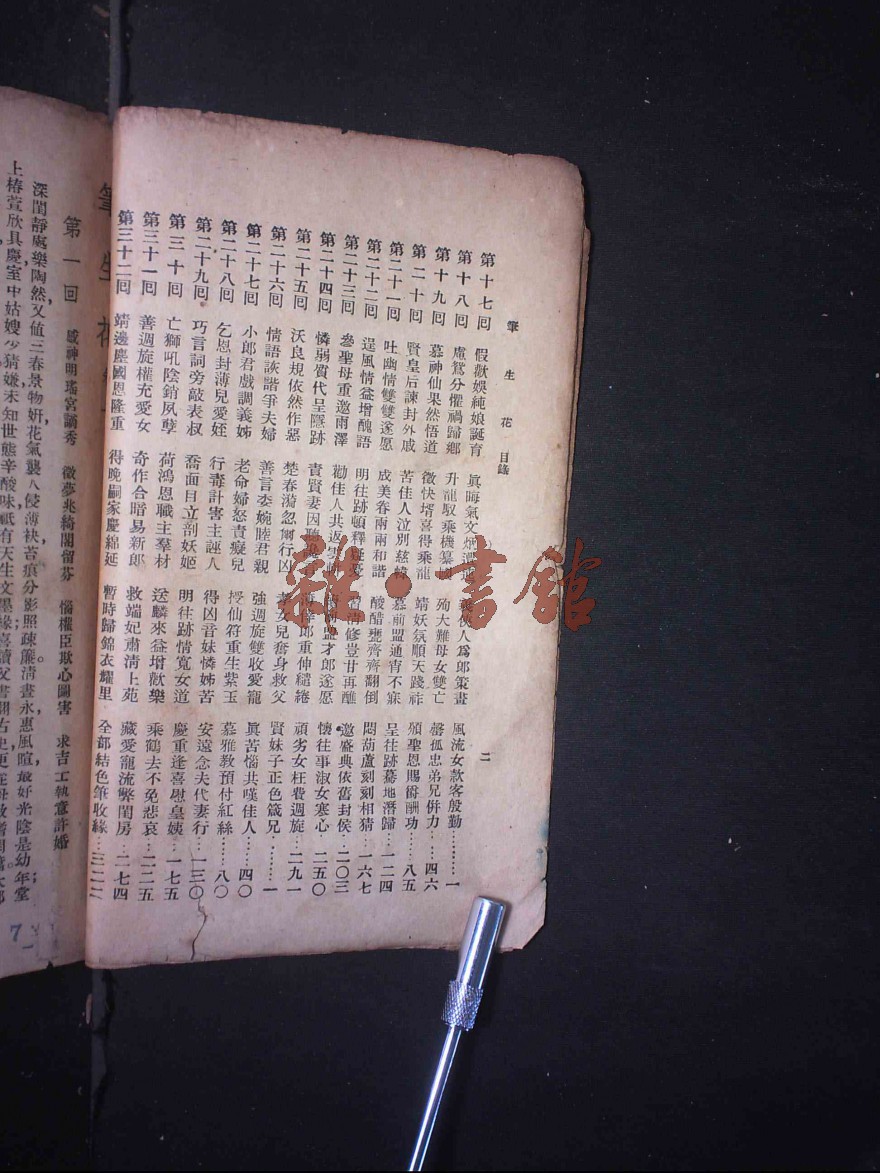 筆生花 目錄 二
第十七回 假歡娛純娘誕育 眞晦氣文炳 俠人爲郎策畫 風流女款客殷勤………一
第十八回 處鴛分懼禍歸鄉 升龍馭乘機篡 殉大難母女雙亡 罄孤忠弟兄併力……四六
第十九回 慕神仙果然悟道 微快壻喜得乘龍 靖妖氛順天踐祚 頒聖恩賜爵酬功……八五
第二十回 賢皇后諫封外戚 苦佳人泣別慈幃 慕前盟通宵不寐 呈往跡驀地潛歸…一二四
第二十一回 吐幽情雙雙遂愿 成美眷兩兩和諧 酸醋甕齊齊翻倒 悶葫蘆刻刻相猜…一六七
第二十二回 逞風情益增醜語 明往跡頓釋疑憂 修豈甘再醮 邀盛典依舊封侯…二〇三
第二十三回 參聖母重邀雨澤 勸佳人共返 盟才郎遂愿 懷往事淑女寒心…二五〇
第二十四回 憐弱質代呈隱跡 責賢妻因聽 郎重伸繾綣 頑劣女枉費週旋…二九一
第二十五回 沃良規依然作惡 楚春漪忽爾行凶 女兒奮身救父 賢妹子正色箴兄……一
第二十六回 情語詼諧爭夫婦 善言委婉睦君親 強週旋雙收愛寵 眞苦惱共嘆佳人……四〇
第二十七回 小郎君戲調義姊 老命婦怒責癡兒 授仙符重生紫玉 慕雅教預付紅絲……八〇
第二十八回 乞恩封薄兒愛姪 行毒計害主誣人 得凶音妹憐姊苦 安遠念夫代妻行…一三〇
第二十九回 巧言詞旁敲表叔 喬面目立剖妖姬 明往跡情寬女道 慶重逢喜慰皇姨…一七五
第三十回 亡獅吼陰銷夙孽 荷鴻恩職主羣材 送麟來益增歡樂 乘鶴去不免悲哀…二二五
第三十一回 善週旋權充愛女 奇作合暗易新郎 救端妃肅清上苑 藏愛寵流弊閨房…二七四
第三十二回 靖邊塵國恩隆重 得晚嗣家慶綿延 暫時歸錦衣耀里 全部結色筆收緣…三二二
筆生花
第一回 感神明瑤宮謫秀 徵夢兆綺閣留芬 惱權臣欺心圖害 求吉士執意許婚
深閨靜處樂陶然，又値三春景物妍，花氣襲人侵薄袂，苔痕分影照疎簾，淸晝永，惠風暄，最好光陰是幼年；堂
上椿萱欣具慶，室中姑嫂少猜嫌，未知世態辛酸味，祇有天生文墨緣；喜讀父書
7
雜·書館